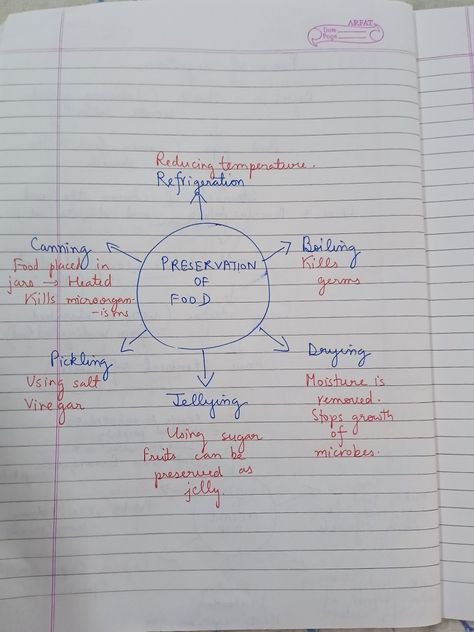 ARFAT
Date
Page
Reducing temperature.
Refrigeration
Canning
Food placed in
jars → Heated
Kills microorgan-
-isms
PRESERVATION
OF
FOOD
Boiling
Kills
germs
Pickling
Using salt
Vinegar
Jellying
Using sugar
Fruits can be
preserved as
jelly.
Drying
Moisture is
removed.
Stops growth
of
microbes.